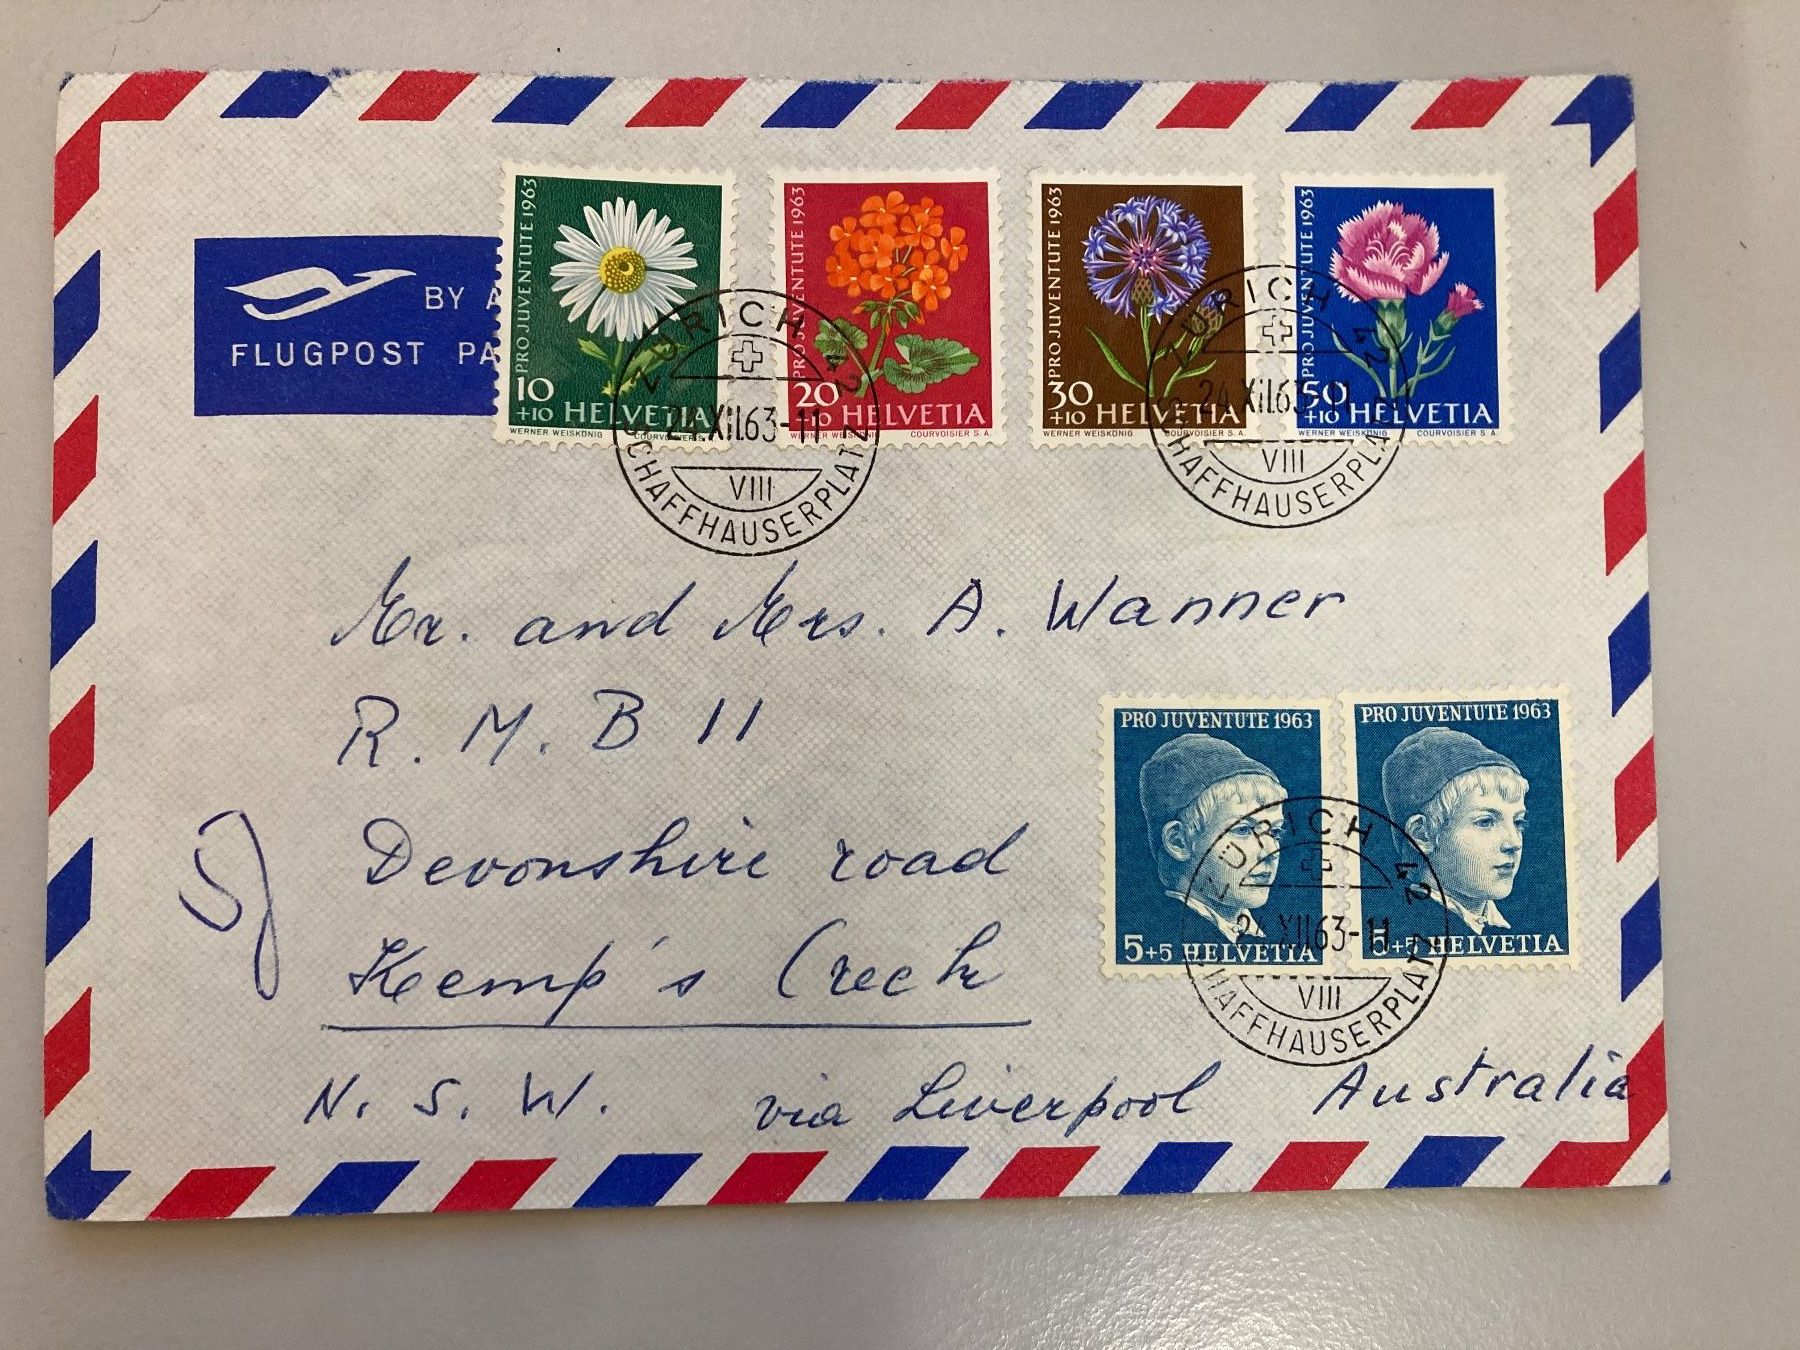 BY A
FLUGPOST PA
PRO JUVENTUTE 1963
10
+10 HELVETIA
WERNER WEISKÖNIG COURVOISIER S.
PRO JUVENTUTE 1963
20
+10 HELVETIA
WERNER WEISKÖNIG COURVOISIER S.A.
PRO JUVENTUTE 1963
30
+10 HELVETIA
WERNER WEISKÖNIG COURVOISIER S.A.
PRO JUVENTUTE 1963
50
+10 HELVETIA
WERNER WEISKÖNIG COURVOISIER S.A.
ZÜRICH 42
24.XII.63-11
VIII
SCHAFFHAUSERPLATZ
ZÜRICH 42
24.XII.63-11
VIII
SCHAFFHAUSERPLATZ
Mr. and Mrs. A. Wanner
R. M. B 11
Devonshire road
Kemp's Creek
N. S. W. via Liverpool Australia
PRO JUVENTUTE 1963
5+5 HELVETIA
PRO JUVENTUTE 1963
5+5 HELVETIA
ZÜRICH 42
24.XII.63-11
VIII
SCHAFFHAUSERPLATZ